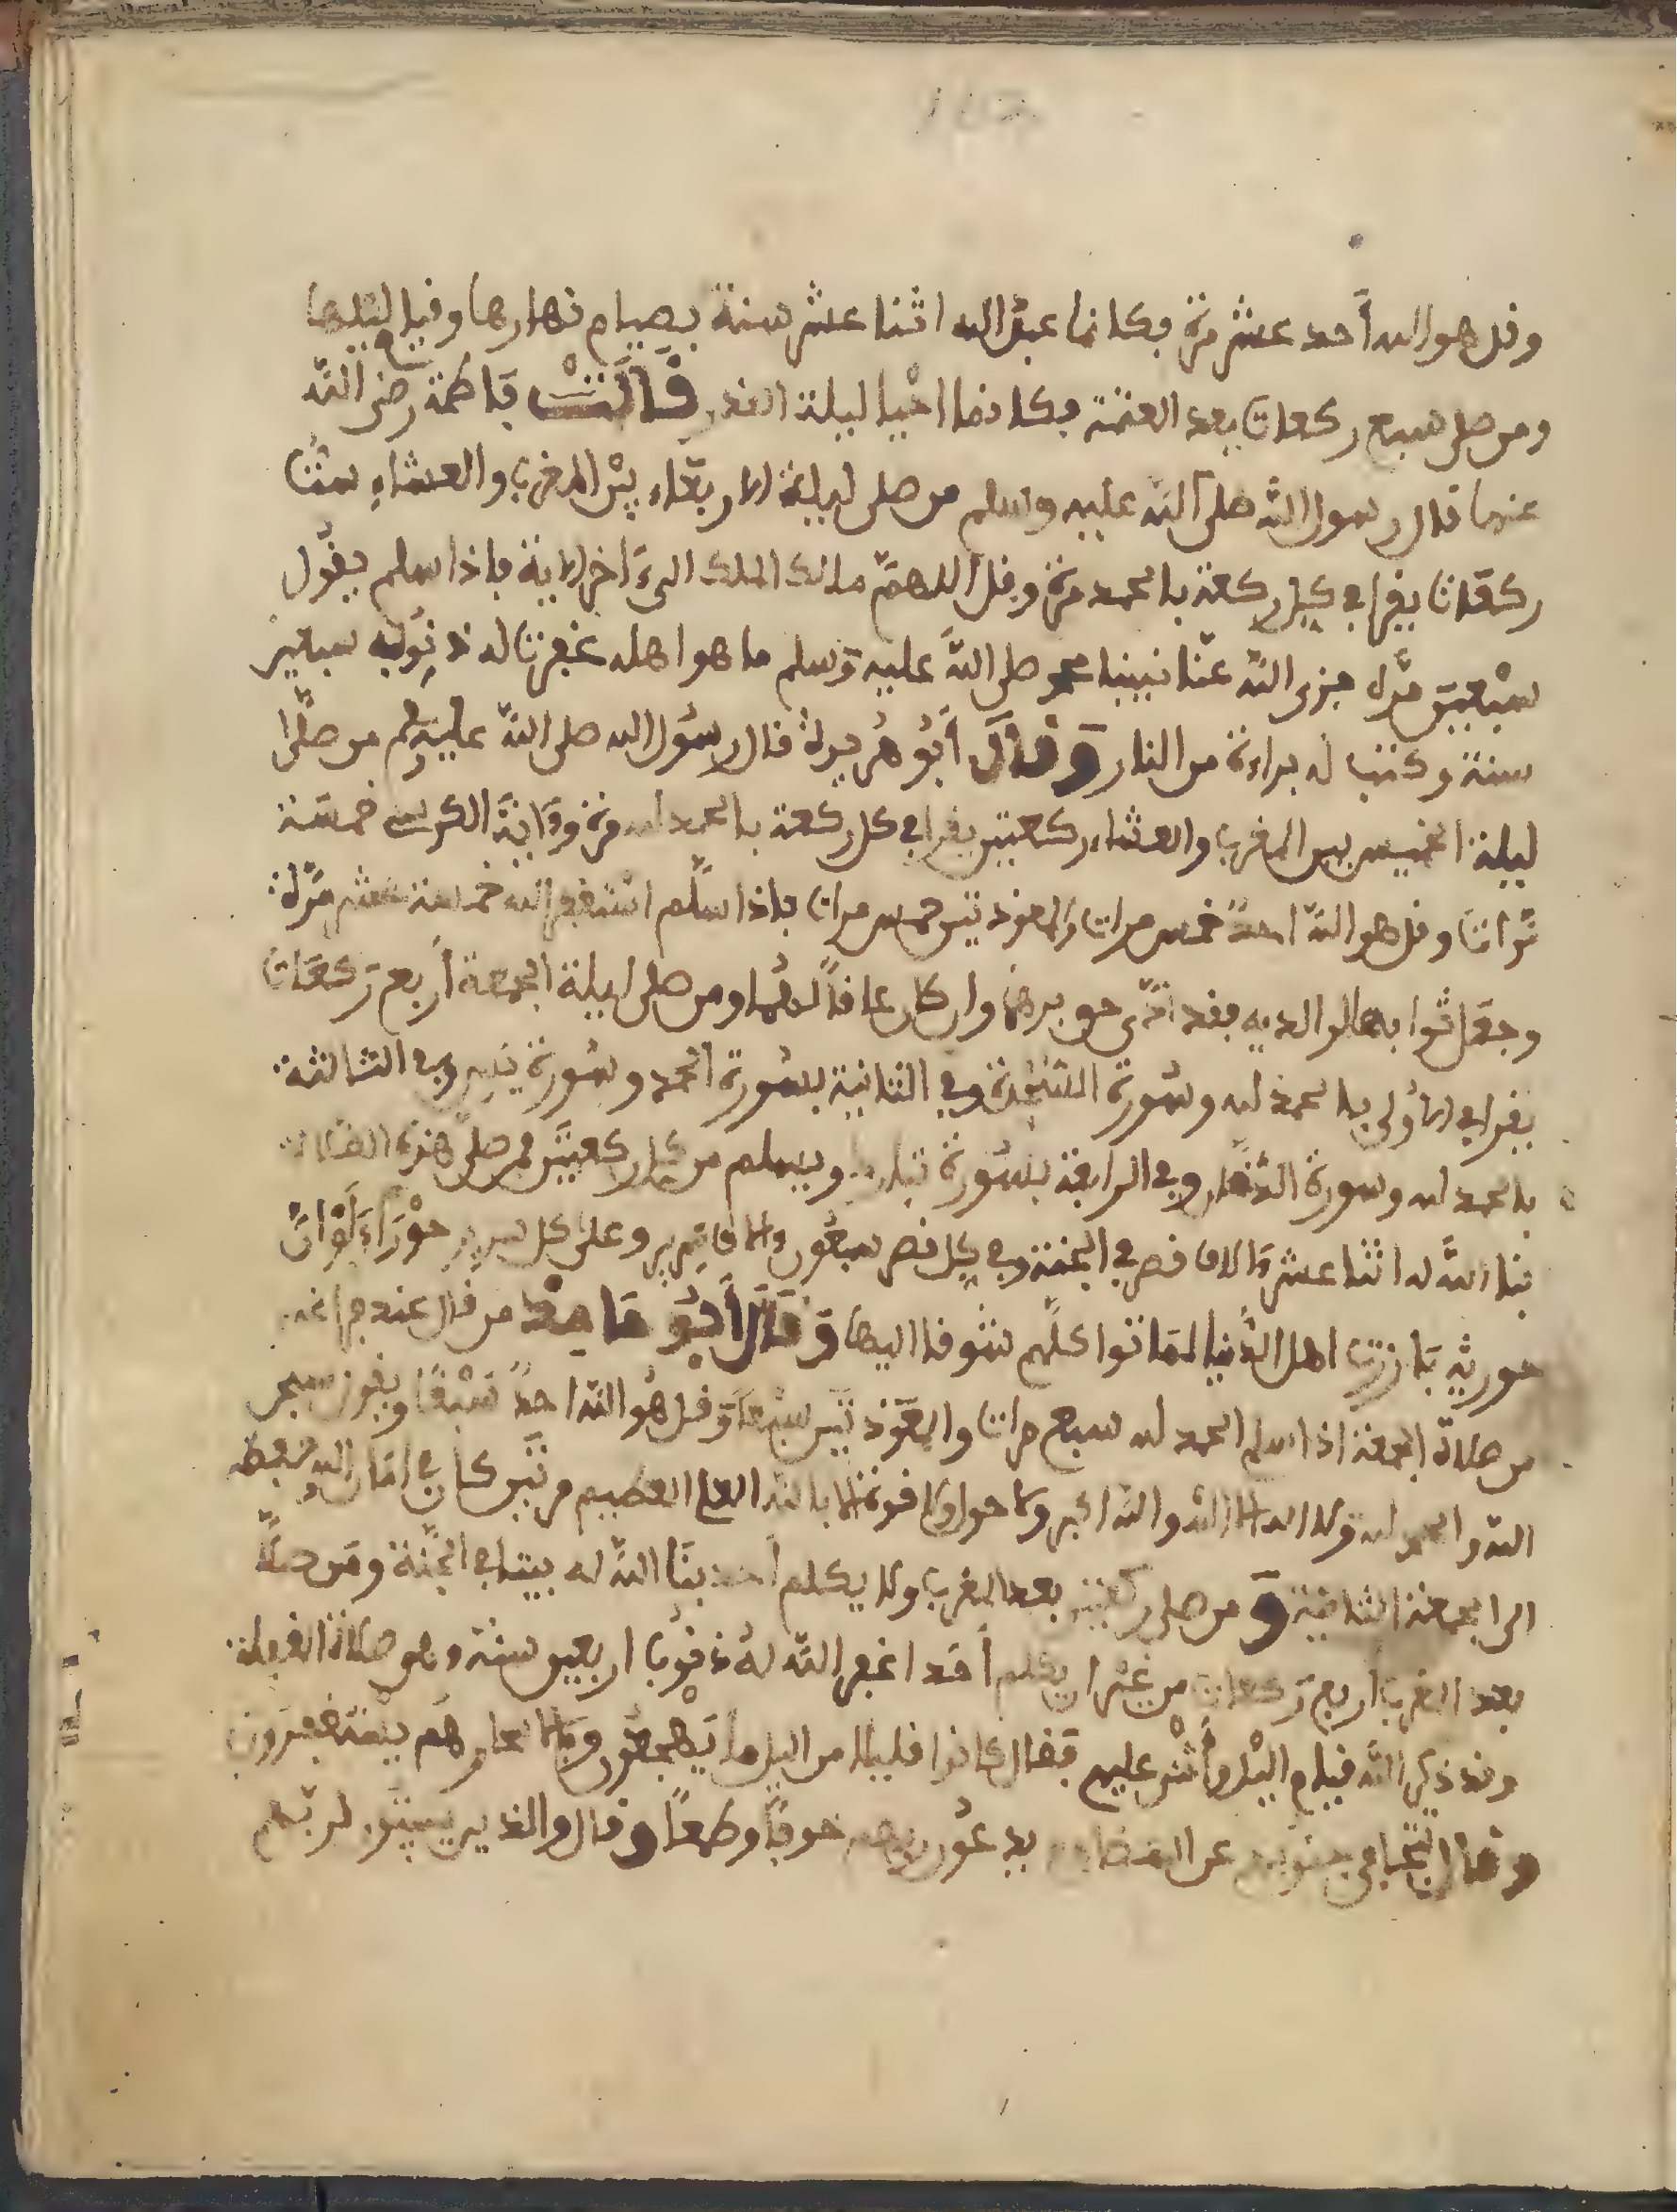 وقل هو الله أحد عشر مرة فكانما عبد الله اثنا عشر سنة بصيام نهارها وقيام ليلها
ومن صلى سبع ركعات بعد العتمة فكانما احْيا ليلة القدر قَالَتْ فاطمة رضى اللّه
عنها قال رسول اللّه صلى اللّه عليه وسلم من صلى ليلة الاربعاء بيْن المغرب والعشاء ستّ
ركعات يقرا في كل ركعة بالحمد مرة وقل اللهمّ مالك الملك الى ءاخر الاية فاذا سلم يقُول
سبْعين مرّة جزى اللّه عنّا نبينا محمد صلى اللّه عليه وسلم ما هو اهله غفرت له ذنُوبه سبعين
سنة وكتب له براءة من النار وَقَالَ أبُو هُريرةُ قال رسُول الله صلى اللّه عليه وسلم من صلّى
ليلة الخميس بين المغرب والعشاء ركعتين يقرا في كل ركعة بالحمد لله مرة وءاية الكرسي خمسَة
مرّات وقل هو اللّه احدٌ خمس مرات والمعوذتين خمس مرات فاذا سلّم استغفر الله خمسة عشر مرّة
وجعل ثوابها لوالديه فقد ادّى حق برهما وان كان عاقاً لهُما ومن صلى ليلة الجمعة أربع ركعات
يقرا في الاُولى بالحمد لله وسُورة السّجْدة وفي الثانية بسُورة الحمد وسُورة يس وفي الثالثة
بالحمد لله وسورة الدّخان وفي الرابعة بسُورة تبارك ويسلم من كل ركعتيْن فمن صلى هذه الصلاة
بنا اللّه له اثنا عشر ءالاف قصر في الجنة وفي كل قصر سبعُون الاف سرير وعلى كل سرير حوْرَاءَ لَوْ انّ
حورية بارزت اهل الدُّنيا لماتوا كلّهم شوقا اليها وَقَالَ أبُو حَامِدْ من قال عند فراغه
من صلاة الجمعة اذا سلم الحمد لله سبع مرات والمعوّذتيْن سبْعاً وَقل هُو اللّه احدٌ سَبْعًا ويقول سبحن
اللّه والحمد لله ولا اله الا اللّه واللّه اكبر ولا حول ولا قوة الا باللّه العلي العظيم مرتيْن كان في امان الله وحفظه
الى الجمعة الثانية وَمن صلى ركعتين بعد المغرب ولا يكلم أحد بنَا اللّه له بيتا في الجنّة ومَن صلّا
بعد المغرب اربع ركعات من غيْر ان يكلم أحَدا غفر اللّه لهُ ذنُوب اربعين سنة وهو صلاة الغفلة
وقد ذكر اللّه قيام اليْل وأثْنى عليهم فقال كانوا قليلا من اليل ما يهْجعُون وبالاسحار هُم يستغفرون
وقال تتجافى جنوبهم عن المضاجع يدعُون ربهم خوفاً وطمعًا وقال والذين يبيتون لربّهم